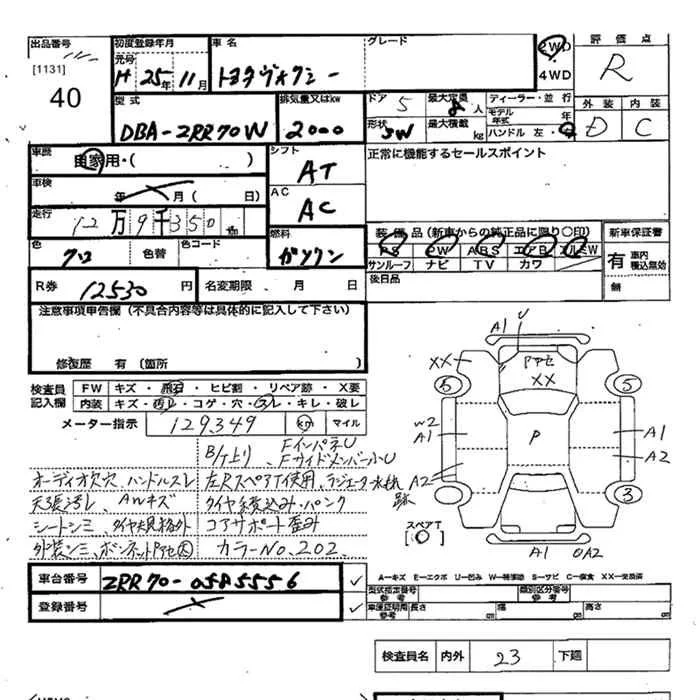 出品番号
[1131]
40
初度登録年月
元号
H 25年 11月
車名
トヨタヴォクシー
グレード
2WD
4WD
評価点
R
外装 内装
D C
型式
DBA-ZRR70W
排気量又はkw
2000
ドア 5
形状 SW
最大定員 8 人
最大積載 kg
ディーラー・並行
モデル年式 年
ハンドル 左・右
車歴
自家用・( )
シフト
AT
正常に機能するセールスポイント
車検
年 月( 日)
AC
AC
走行
12万9千350
色
クロ
色替
色コード
燃料
ガソリン
装備品(新車からの純正品に限り〇印)
PS PW ABS エアB アルミW
サンルーフ ナビ TV カワ
後日品
新車保証書
有 車内積込無効
無
R券 12530 円
名変期限 月 日
注意事項申告欄(不具合内容等は具体的に記入して下さい)
修復歴 有(箇所 )
検査員記入欄
FW キズ・飛石・ヒビ割・リペア跡・X要
内装 キズ・汚レ・コゲ・穴・スレ・キレ・破レ
メーター指示 129,349 km マイル
B/ケ上り、FインパネU
Fサイドメンバー小U
オーディオ欠穴、ハンドルスレ
左RスペアT使用、ラジエーター水枕
天張汚レ、AWキズ
タイヤ積込み・パンク
シートシミ、タイヤ規格外
コアサポート歪み
外装シミ、ボンネットPアセ大
カラーNo.202
跡
A1 U
XX
Pアセ
XX
5 5
W2
A1
P
A1
A2
A2
3
スペアT
[〇]
A1 〇A2
車台番号
ZRR70-0585556
登録番号
A－キズ E－エクボ U－凹み W－補修跡 S－サビ C－腐食 XX－交換済
型式指定番号 参考
類別区分番号 参考
車庫証明用 参考
長さ cm 幅 cm 高さ cm
検査員名 内外 23 下廻